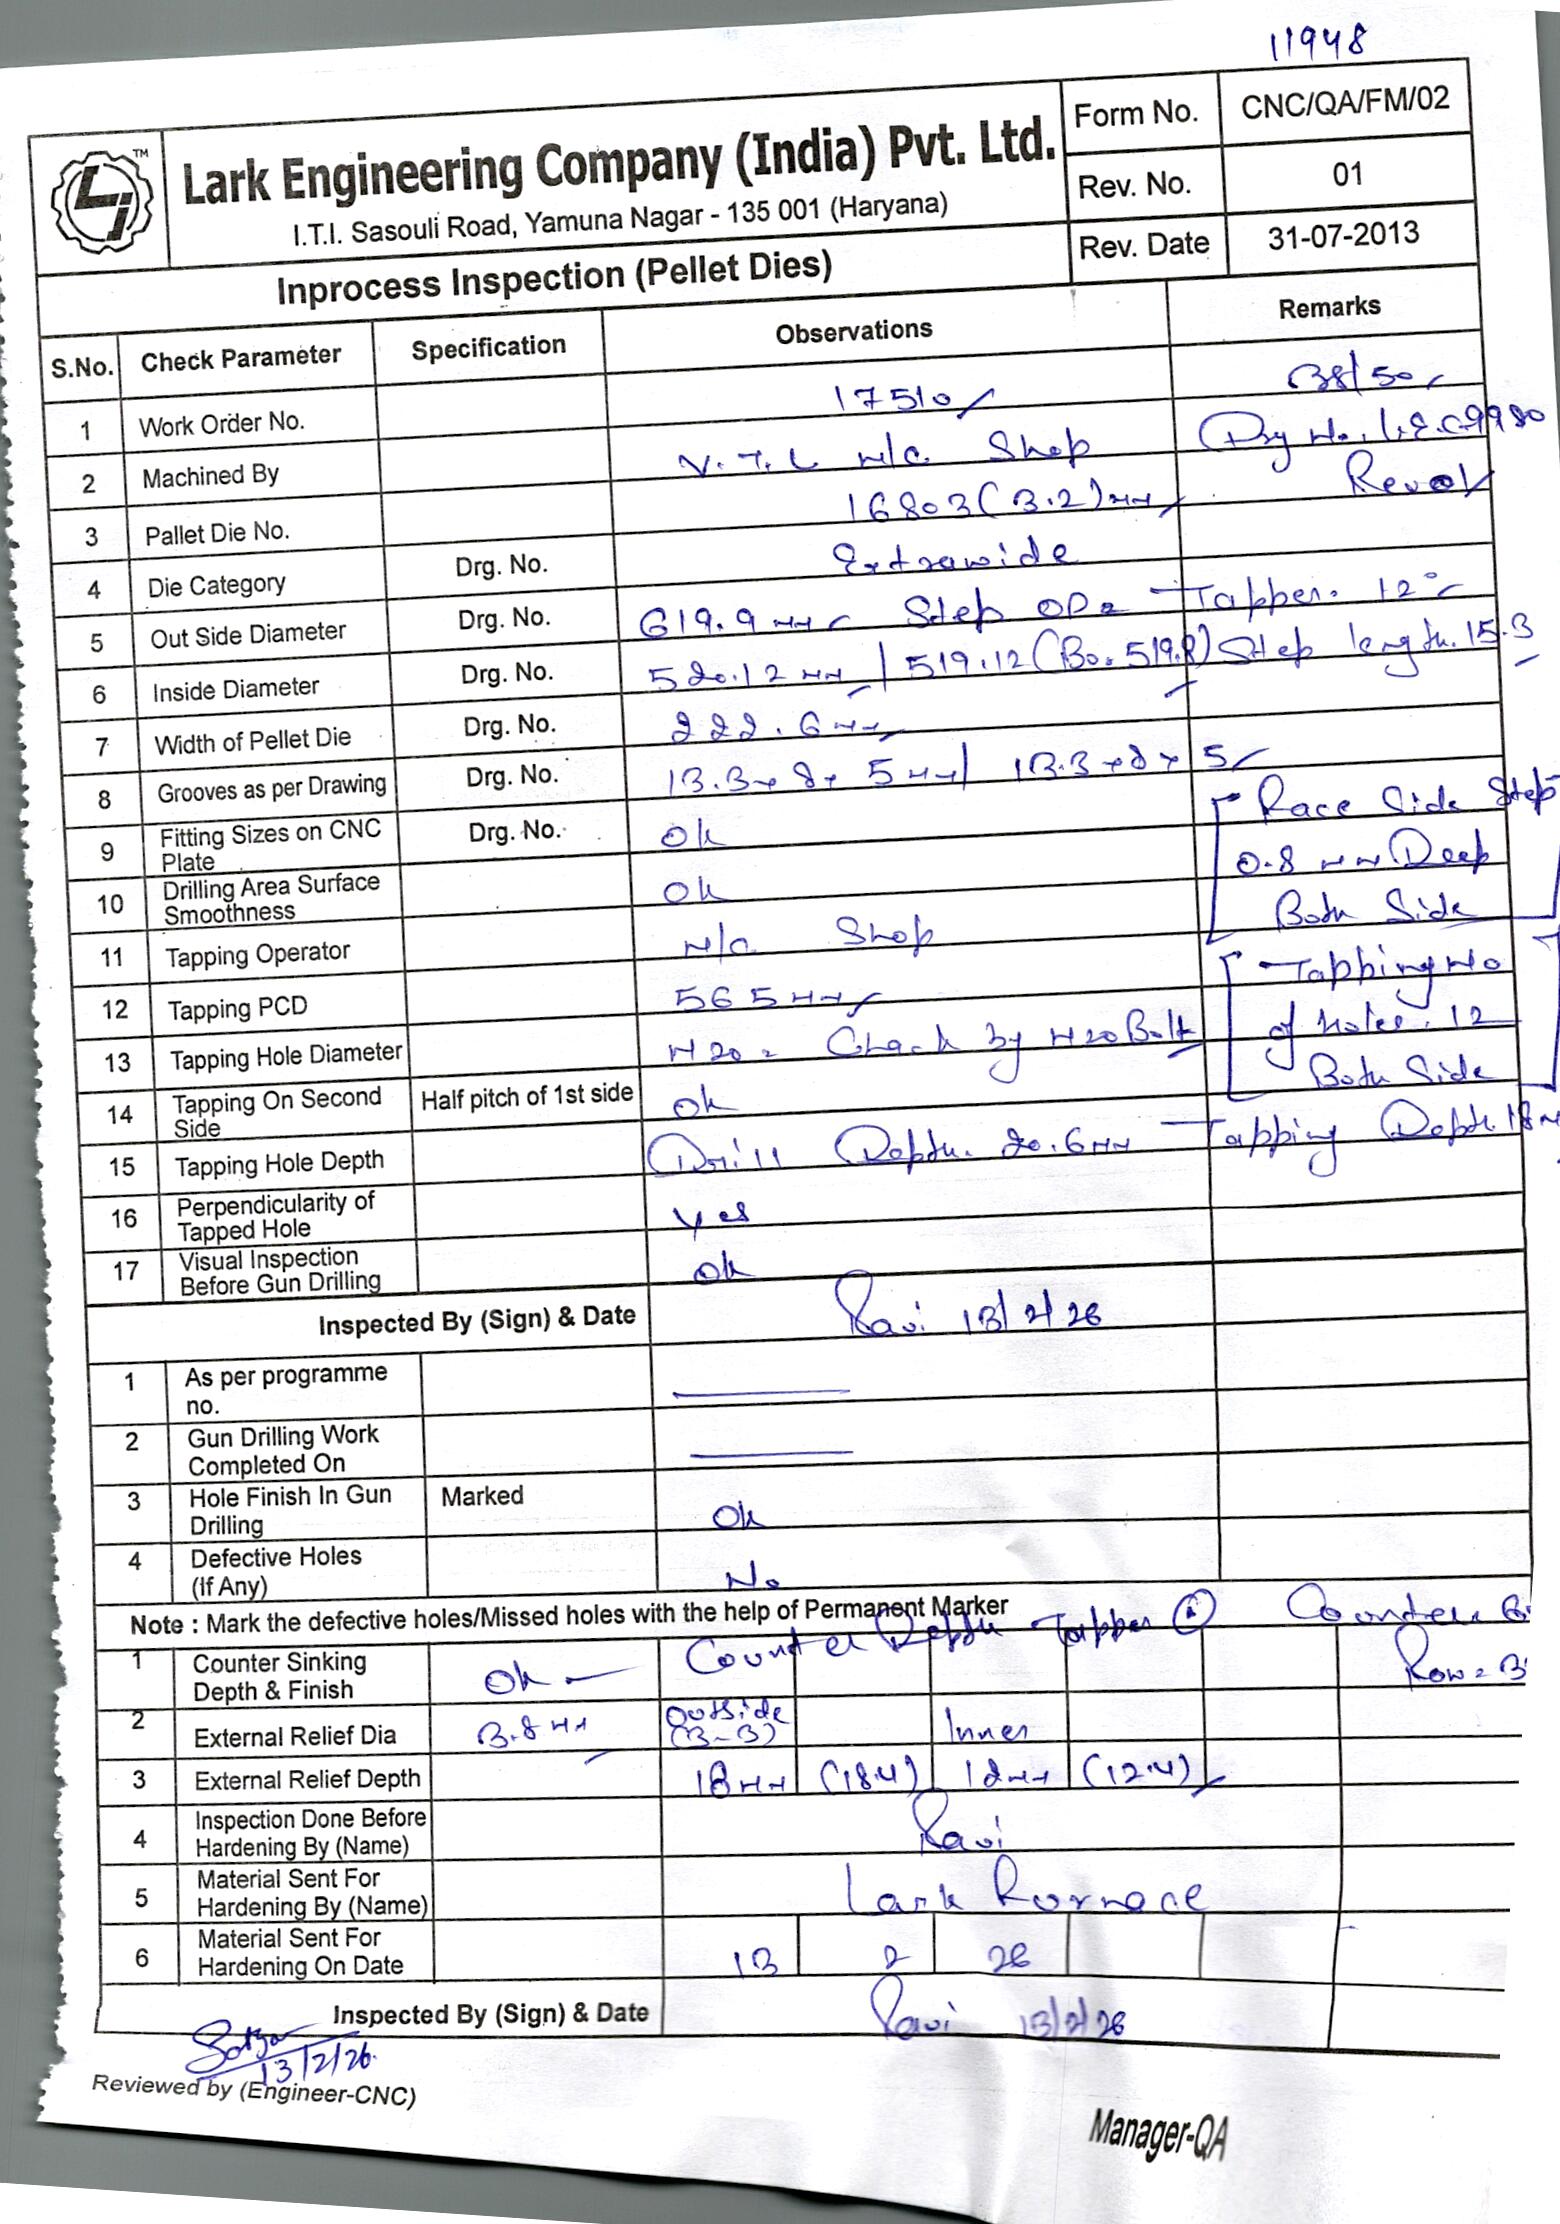 11948
Lark Engineering Company (India) Pvt. Ltd.
I.T.I. Sasouli Road, Yamuna Nagar - 135 001 (Haryana)
Form No. CNC/QA/FM/02
Rev. No. 01
Rev. Date 31-07-2013
Inprocess Inspection (Pellet Dies)
S.No. Check Parameter Specification Observations Remarks
1 Work Order No. 17510 38/50
2 Machined By V.T.L M/c Shop Drg No. L.E.C-9980
3 Pallet Die No. 16803 (3.2) mm Rev01
4 Die Category Drg. No. Extrawide
5 Out Side Diameter Drg. No. 619.9 mm Step OD= Tapper. 12°
6 Inside Diameter Drg. No. 520.12 mm / 519.12 (Bo. 519.8) Step length. 15.3
7 Width of Pellet Die Drg. No. 222.6 mm
8 Grooves as per Drawing Drg. No. 13.3 x 8 x 5 mm / 13.3 x 8 x 5
9 Fitting Sizes on CNC Plate Drg. No. Ok
Race Side Step
0.8 mm Deep
Both Side
10 Drilling Area Surface Smoothness Ok
11 Tapping Operator M/c Shop
12 Tapping PCD 565 mm
Tapping No
of holes. 12
Both Side
13 Tapping Hole Diameter M20 = Chack by M20 Bolt
14 Tapping On Second Side Half pitch of 1st side Ok
15 Tapping Hole Depth Drill Depth. 20.6 mm Tapping Depth. 18
16 Perpendicularity of Tapped Hole Yes
17 Visual Inspection Before Gun Drilling Ok
Inspected By (Sign) & Date Ravi 13/2/26
1 As per programme no.
2 Gun Drilling Work Completed On
3 Hole Finish In Gun Drilling Marked Ok
4 Defective Holes (If Any) No
Note : Mark the defective holes/Missed holes with the help of Permanent Marker
Counter Depth Tapper Counter
Row = 3
1 Counter Sinking Depth & Finish Ok
2 External Relief Dia 3.8 mm Outside (3-3) Inner
3 External Relief Depth 18 mm (18.4) 12 mm (12.4)
4 Inspection Done Before Hardening By (Name) Ravi
5 Material Sent For Hardening By (Name) Lark Furnace
6 Material Sent For Hardening On Date 13 2 26
Inspected By (Sign) & Date Ravi 13/2/26
13/2/26
Reviewed by (Engineer-CNC)
Manager-QA